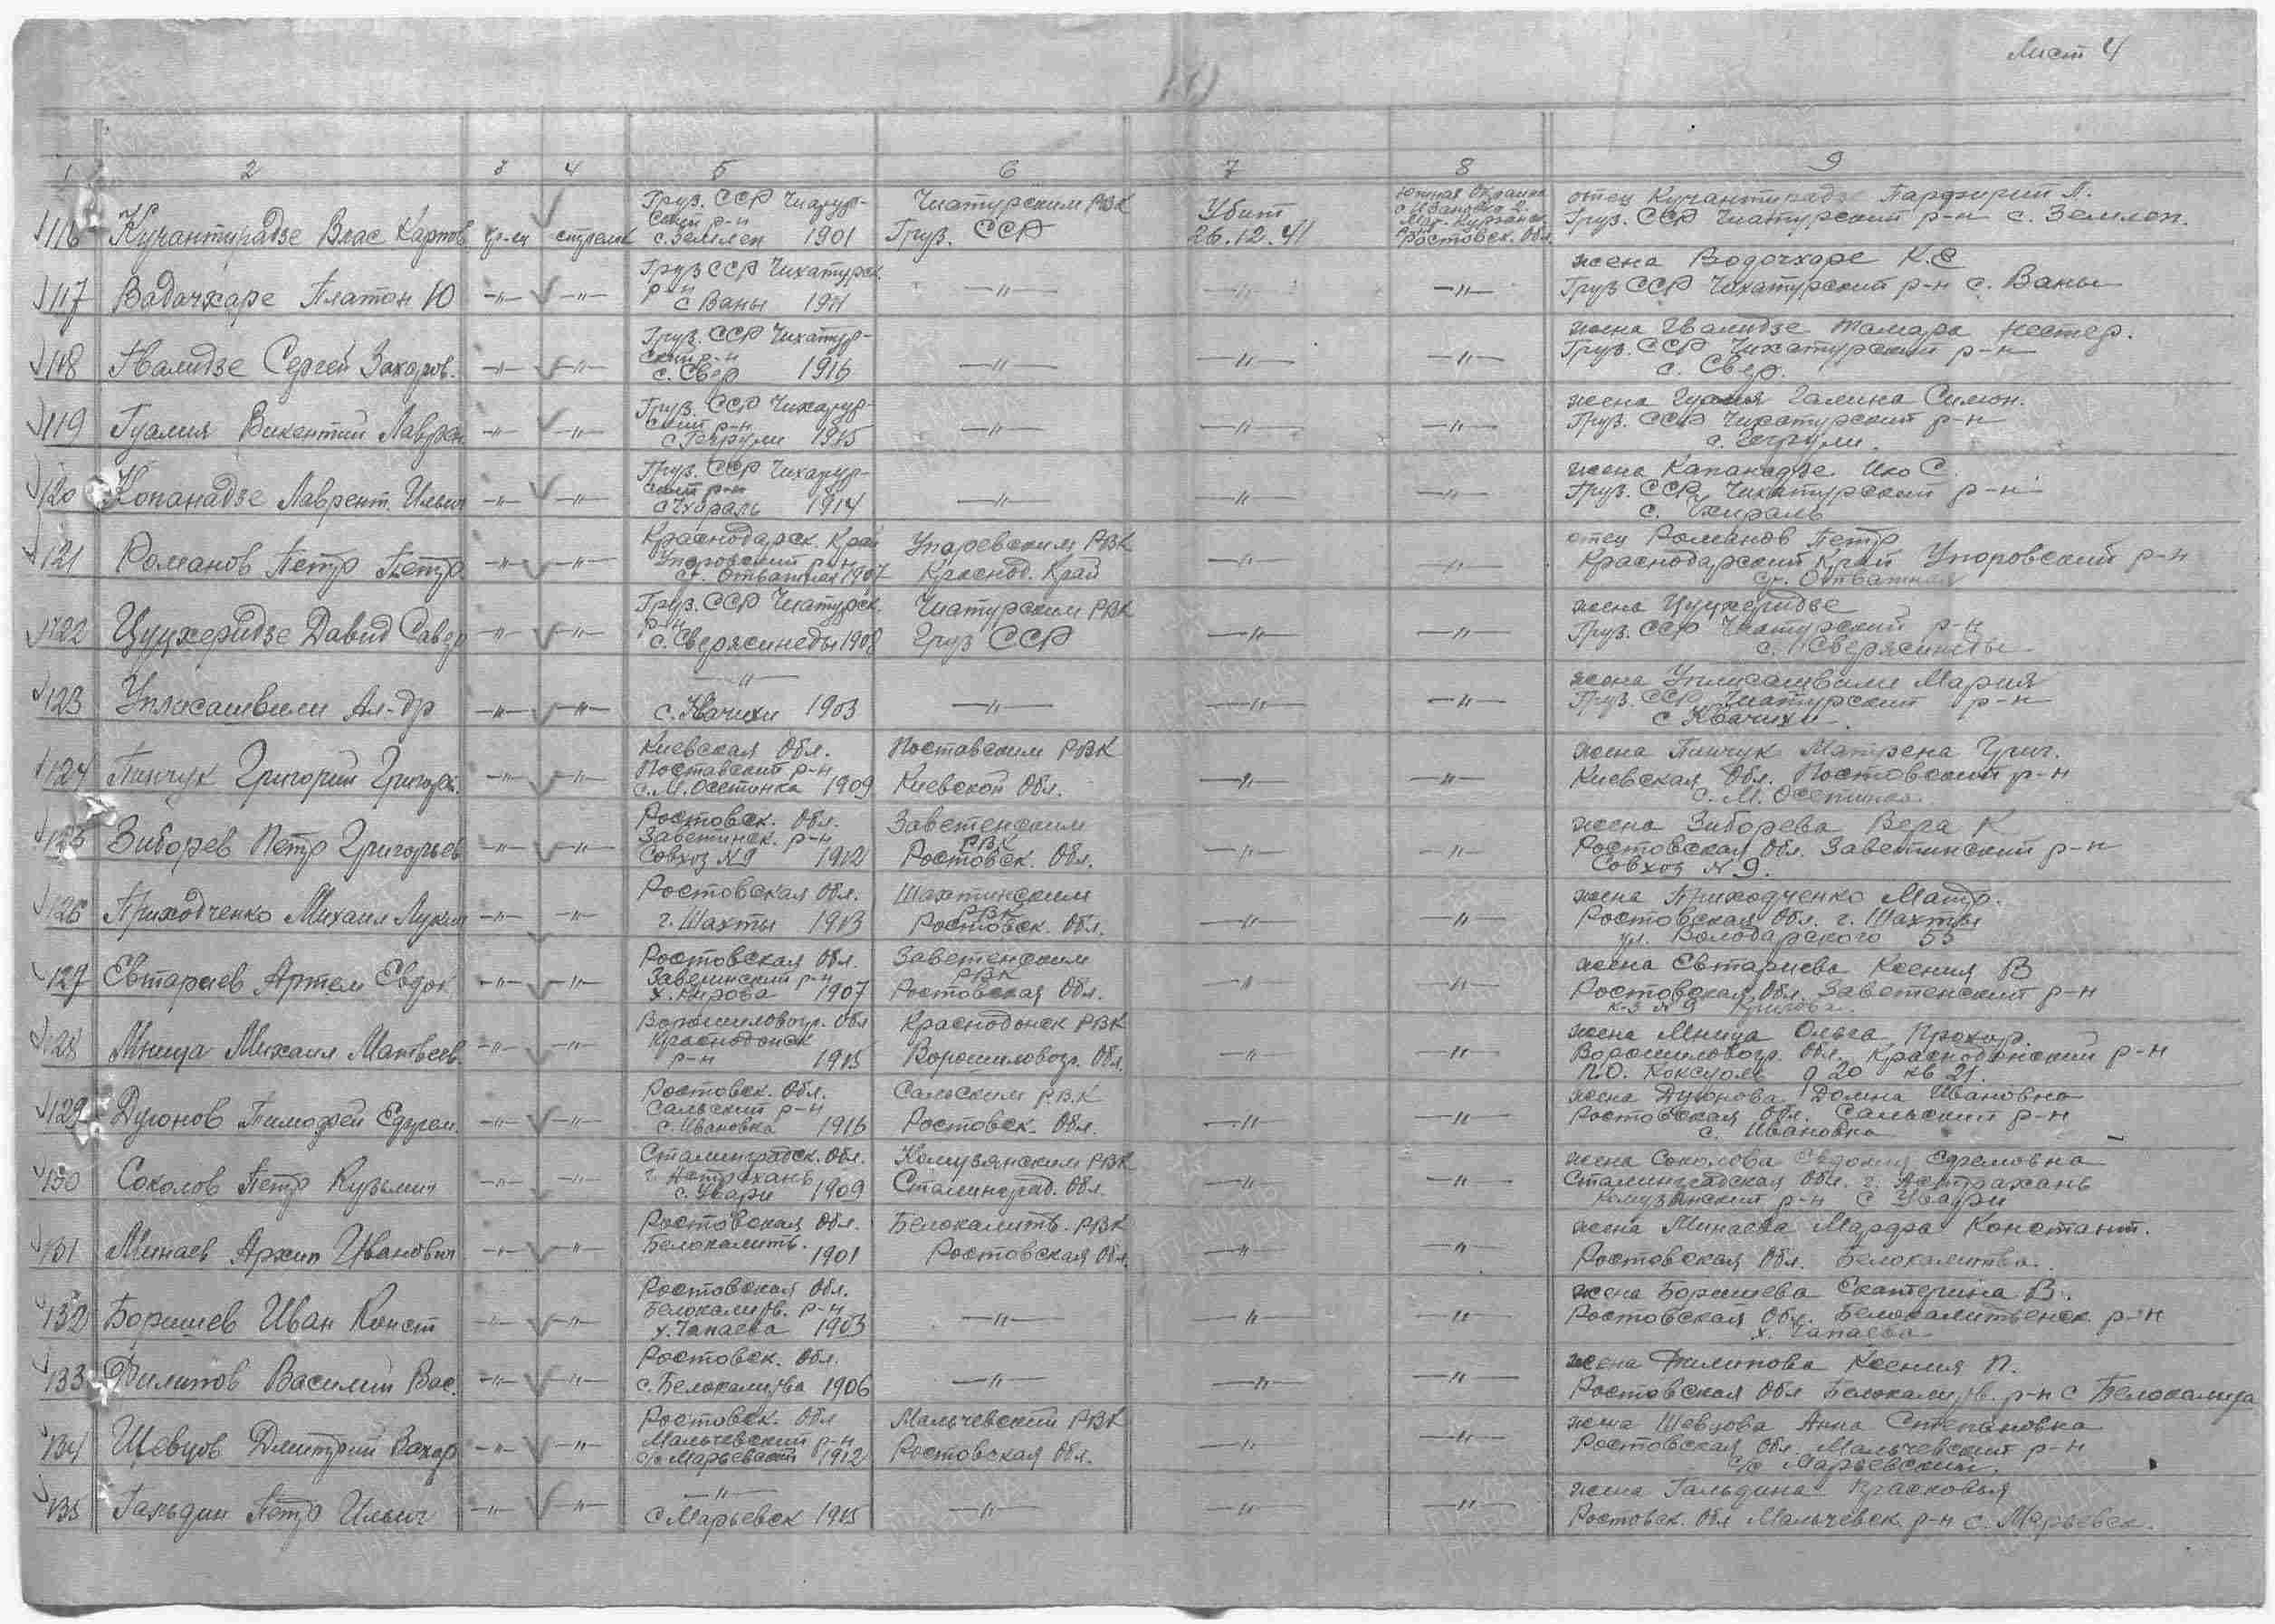 Лист 4
1 2 3 4 5 6 7 8 9
116 Кучантирадзе Влас Карпов. кр-ец стрелк Груз. ССР Чиатур-
ский р-н
с. Землеп 1901 Чиатурским РВК
Груз. ССР Убит
26.12.41 Южная окраина
Ростовск. Обл. отец Кучантирадзе Парфирий Л.
Груз. ССР Чиатурский р-н с. Землеп.
117 Вадачхаре Платон Ю —"— —"— Груз ССР Чихатурск.
р-н
с Ваны 1911 —"— —"— —"— жена Водочхаре К.С
Груз ССР Чихатурский р-н с. Ваны
118 Гвалидзе Сергей Захаров. —"— —"— Груз. ССР Чихатур-
ский р-н
с. Свер 1916 —"— —"— —"— жена Гвалидзе Тамара Нестер.
Груз. ССР Чихатурский р-н
с. Свер.
119 Гуалия Викентий Лаврен —"— —"— Груз. ССР Чихатур-
ский р-н
1915 —"— —"— —"— жена Гуалия Галина Симон.
Груз. ССР Чихатурский р-н
120 Копанадзе Лаврент. Ильич —"— —"— Груз. ССР Чихатур-
ский р-н
1914 —"— —"— —"— жена Капанадзе С.
Груз. ССР Чихатурский р-н
121 Романов Петр Петр. —"— —"— Краснодарск. Край
Упоровский р-н
ст. Отважная 1907 Упаревским РВК
Краснод. Край —"— —"— отец Романов Петр
Краснодарский Край Упоровский р-н
ст. Отважная
122 Цуцхеридзе Давид Савер —"— —"— Груз. ССР Чиатурск.
р-н
с. Сверясинеды 1908 Чиатурским РВК
Груз ССР —"— —"— жена Цуцхеридзе
Груз. ССР Чиатурский р-н
с. Сверясинеды
123 Уплисашвили Ал-др —"— —"— —"—
с. Квачихи 1903 —"— —"— —"— жена Уплисашвили Мария
Груз. ССР Чиатурский р-н
с Квачихи.
124 Пинчук Григорий Григорь. —"— —"— Киевская Обл.
Поставский р-н
с. М. Осетинка 1909 Поставским РВК
Киевской Обл. —"— —"— жена Пинчук Матрена Григ.
Киевская Обл. Поставский р-н
с. М. Осетинка.
125 Зиборев Петр Григорьев —"— —"— Ростовск. Обл.
Заветинск. р-н
Совхоз №9 1912 Заветенским
РВК
Ростовск. Обл. —"— —"— жена Зиборева Вера К
Ростовская Обл. Заветинский р-н
Совхоз №9.
126 Приходченко Михаил Лукич —"— —"— Ростовская Обл.
г. Шахты 1913 Шахтинским
РВК
Ростовск. Обл. —"— —"— жена Приходченко Матр.
Ростовская Обл. г. Шахты
ул. Володарского 55
127 Евтараев Артем Евдок —"— —"— Ростовская Обл.
Заветинский р-н
х. Кирова 1907 Заветенским
РВК
Ростовская Обл. —"— —"— жена Евтариева Ксения В
Ростовская Обл. Заветенский р-н
128 Мница Михаил Матвеев. —"— —"— Ворошиловогр. Обл
Краснодонск
р-н 1915 Краснодонск РВК
Ворошиловогр. Обл. —"— —"— жена Мница Ольга Прохор.
Ворошиловогр. Обл. Краснодонский р-н
П.О. д 20 кв 21.
129 Дугонов Тимофей Ефрем. —"— —"— Ростовск. Обл.
Сальский р-н
с. Ивановка 1916 Сальским РВК
Ростовск. Обл. —"— —"— жена Дугонова Домна Ивановна
Ростовская Обл. Сальский р-н
с. Ивановка
130 Соколов Петр Кузьмич —"— —"— Сталинградск. Обл.
г. Астрахань
с. Увари 1909 Камузянским РВК
Сталинград. Обл. —"— —"— жена Соколова Евдокия Ефремовна
Сталинградская Обл. г. Астрахань
Камузянский р-н с Увари
131 Минаев Архип Иванович —"— —"— Ростовская Обл.
Белокалитв. 1901 Белокалитв. РВК
Ростовская Обл. —"— —"— жена Минаева Марфа Констант.
Ростовская Обл. Белокалитва.
132 Боришев Иван Конст —"— —"— Ростовская Обл.
Белокалитв. р-н
х. Чапаева 1903 —"— —"— —"— жена Боришева Екатерина В.
Ростовская Обл. Белокалитвенск р-н
х. Чапаева
133 Филипов Василий Вас. —"— —"— Ростовск. Обл.
с. Белокалитва 1906 —"— —"— —"— жена Филипова Ксения П.
Ростовская Обл Белокалитв. р-н с Белокалитва
134 Шевцов Дмитрий Захар —"— —"— Ростовск. Обл
Мальчевский р-н
с/с Марьевский 1912 Мальчевский РВК
Ростовская Обл. —"— —"— жена Шевцова Анна Степановна
Ростовская Обл. Мальчевский р-н
с/с Марьевский.
135 Гальдин Петр Ильич —"— —"— —"—
с Марьевск 1915 —"— —"— —"— жена Гальдина Прасковья
Ростовск. Обл Мальчевск р-н с. Марьевск.